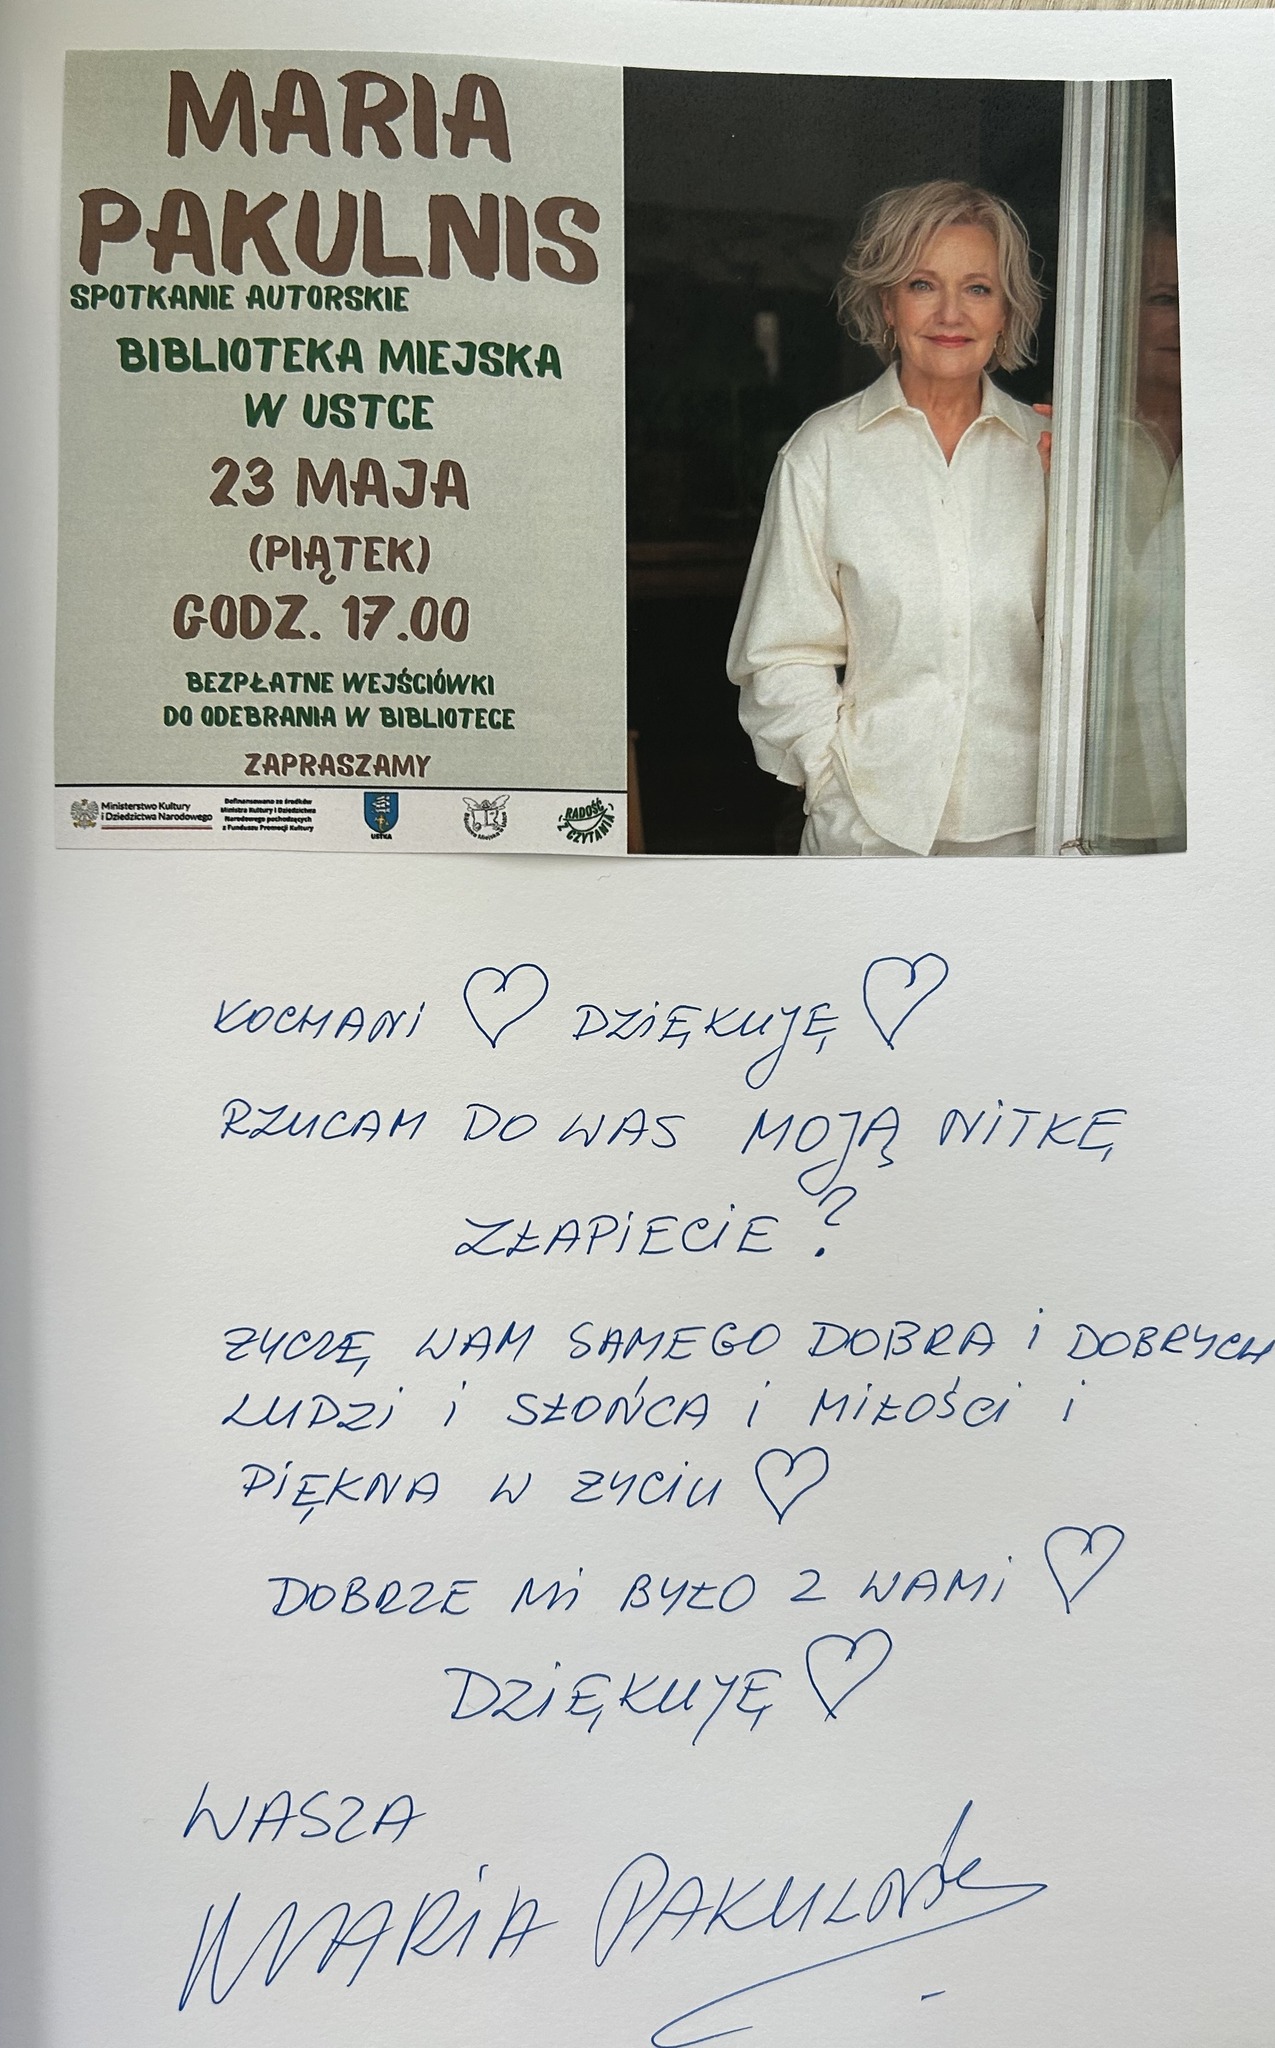 MARIA
PAKULNIS
SPOTKANIE AUTORSKIE
BIBLIOTEKA MIEJSKA
W USTCE
23 MAJA
(PIĄTEK)
GODZ. 17.00
BEZPŁATNE WEJŚCIÓWKI
DO ODEBRANIA W BIBLIOTECE
ZAPRASZAMY
Ministerstwo Kultury
i Dziedzictwa Narodowego
Dofinansowano ze środków
Ministra Kultury i Dziedzictwa
Narodowego pochodzących
z Funduszu Promocji Kultury
USTKA
RADOŚĆ
Z CZYTANIA
KOCHANI ♡ DZIĘKUJĘ ♡
RZUCAM DO WAS MOJĄ NITKĘ
ZŁAPIECIE?
ŻYCZĘ WAM SAMEGO DOBRA i DOBRYCH
LUDZI i SŁOŃCA i MIŁOŚCI i
PIĘKNA W ŻYCIU ♡
DOBRZE MI BYŁO Z WAMI ♡
DZIĘKUJĘ ♡
WASZA
MARIA PAKULNIS